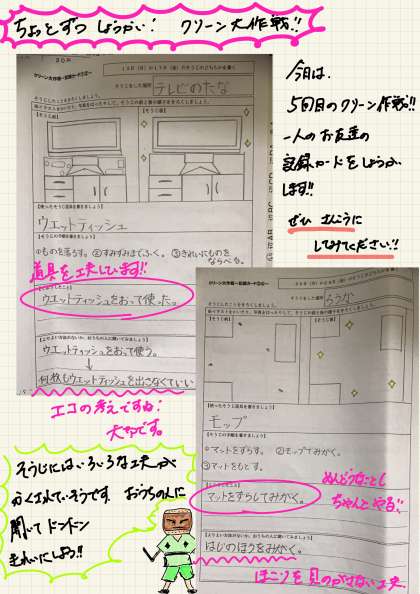 ちょっとずつ しょうかい! クリーン大作戦!!
今日は、
5回目のクリーン作戦!!
一人のお友達の
記録カードをしょうかい
します!!
ぜひ さんこうに
してみてください!!
クリーン大作戦~記録カード②~
そうじをした場所
テレビのたな
【そうじ前】
【そうじ後】
ウエットティッシュ
①ものを落ろす。②すみずみまでふく。③きれいにものを
ならべる。
道具を工夫しています!!
ウエットティッシュをおって使った。
ウエットティッシュをおって使う。
↓
何枚もウエットティッシュを出さなくていい
エコの考えですね!
大切です。
クリーン大作戦~記録カード②~
そうじをした場所
ろうか
【そうじ前】
【そうじ後】
モップ
①マットをずらす。②モップでみがく。
③マットをもどす。
めんどうなことも
ちゃんとやる!!
マットをずらしてみがく。
はじのほうをみがく。
ほこりを見のがさない工夫
そうじにはいろいろな工夫が
かくされていそうです おうちの人に
聞いて ドンドン
きれいにしよう!!